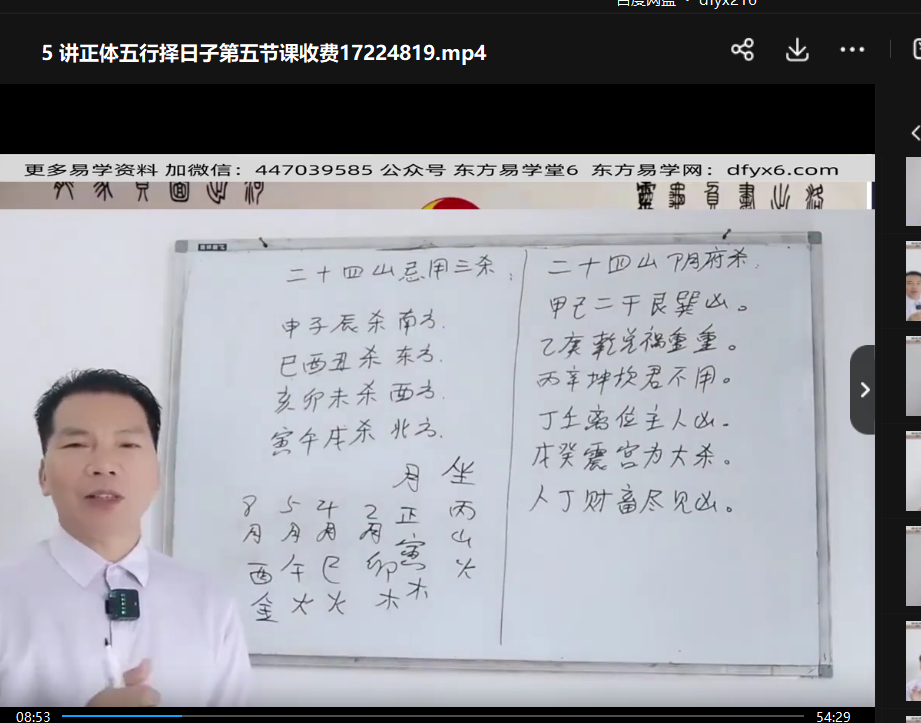 百度网盘 · dfyx216
5 讲正体五行择日子第五节课收费17224819.mp4
更多易学资料 加微信：447039585 公众号 东方易学堂6 东方易学网：dfyx6.com
二十四山忌用三杀：
申子辰杀南方.
巳酉丑杀东方.
亥卯未杀西方.
寅午戌杀北方.
月 坐
8月酉金
5月午火
4月巳火
2月卯木
正寅木
丙山火
二十四山阴府杀.
甲己二干艮巽凶。
乙庚乾兑祸重重。
丙辛坤坎君不用。
丁壬离位主人凶.
戊癸震宫为大杀。
人丁财畜尽见凶。
08:53
54:29